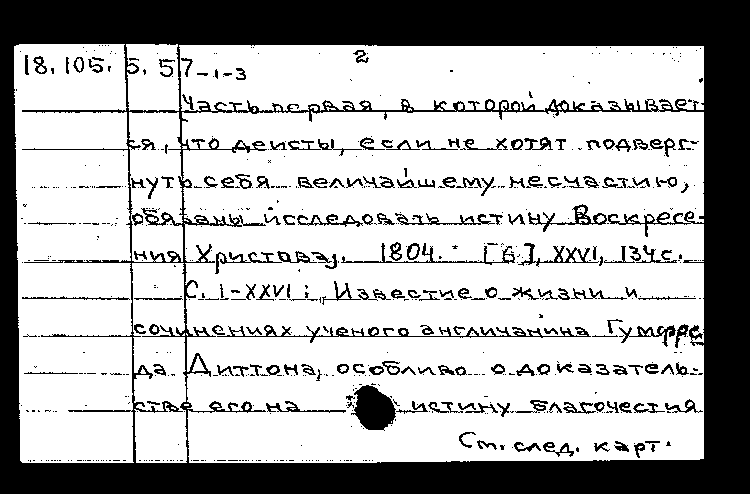 2
18.105.5.57-1-3
Часть первая, в которой доказывает-
ся, что деисты, если не хотят подверг-
нуть себя величайшему несчастию,
обязаны исследовать истину Воскресе-
ния Христова]. 1804. [6], XXVI, 134 с.
С. I-XXVI: Известие о жизни и
сочинениях ученого англичанина Гумфре
да Диттона, особливо о доказатель-
стве его на истину благочестия
См. след. карт.